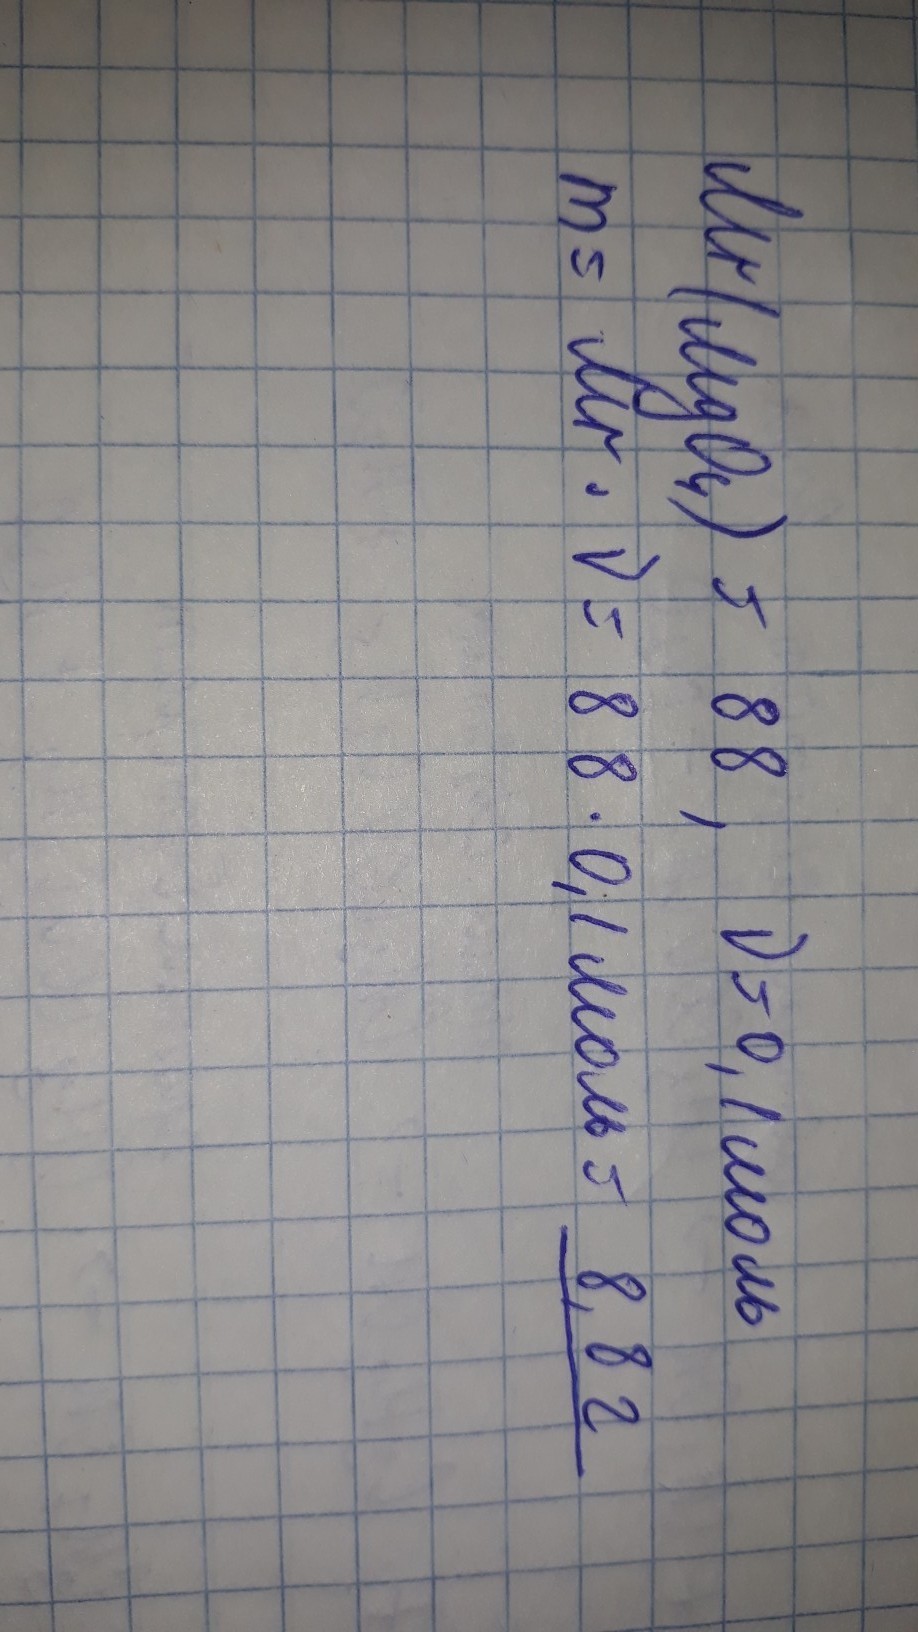 Mr(MgO₄) = 88, ν = 0,1 моль
m = Mr · ν = 88 · 0,1 моль = 8,8 г